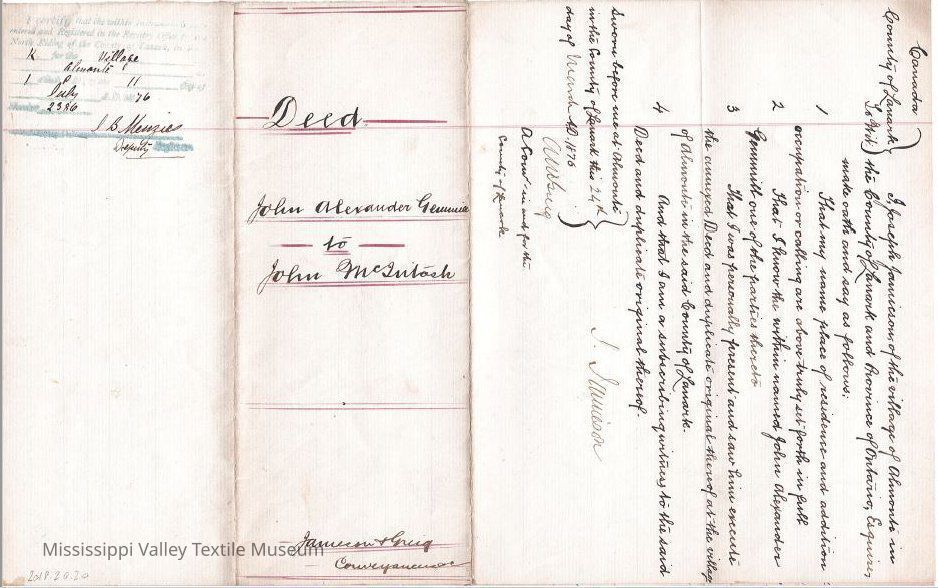 I certify that the within instrument is
entered and Registered in the Registry Office for the
North Riding of the County of Lanark, in
K for the Village
Almonte
1 P 11
July 76
2386
J B Menzies
Deputy Registrar
Deed
John Alexander Gemmill
to
John McIntosh
Jamieson & Greig
Conveyancers
Canada
County of Lanark
To Wit
I, Joseph Jamieson, of the village of Almonte in
the County of Lanark and Province of Ontario, Esquire,
make oath and say as follows:
1 That my name place of residence and addition
occupation or calling are above truly set forth in full
2 That I know the within named John Alexander
Gemmill one of the parties thereto
3 That I was personally present and saw him execute
the annexed Deed and duplicate original thereof at the village
of Almonte in the said County of Lanark.
4 And that I am a subscribing witness to the said
Deed and duplicate original thereof
Sworn before me at Almonte
in the County of Lanark this 24th
day of March AD. 1876
J. Jamieson
A Com in and for the
County of Lanark
Mississippi Valley Textile Museum
2018.20.20